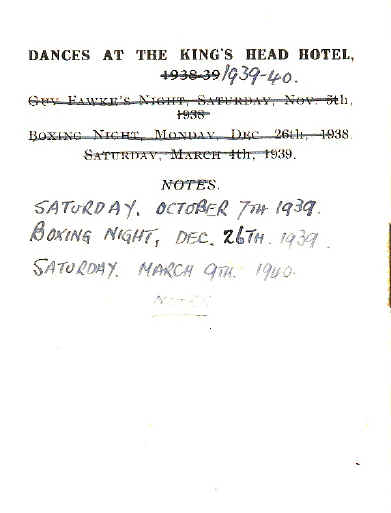 DANCES AT THE KING'S HEAD HOTEL,
1938-39 1939-40.
GUY FAWKE'S NIGHT, SATURDAY, NOV. 5th,
1938
BOXING NIGHT, MONDAY, DEC. 26th, 1938.
SATURDAY, MARCH 4th, 1939.
NOTES.
SATURDAY. OCTOBER 7TH 1939.
BOXING NIGHT, DEC. 26TH. 1939.
SATURDAY. MARCH 9TH. 1940.
NOTES